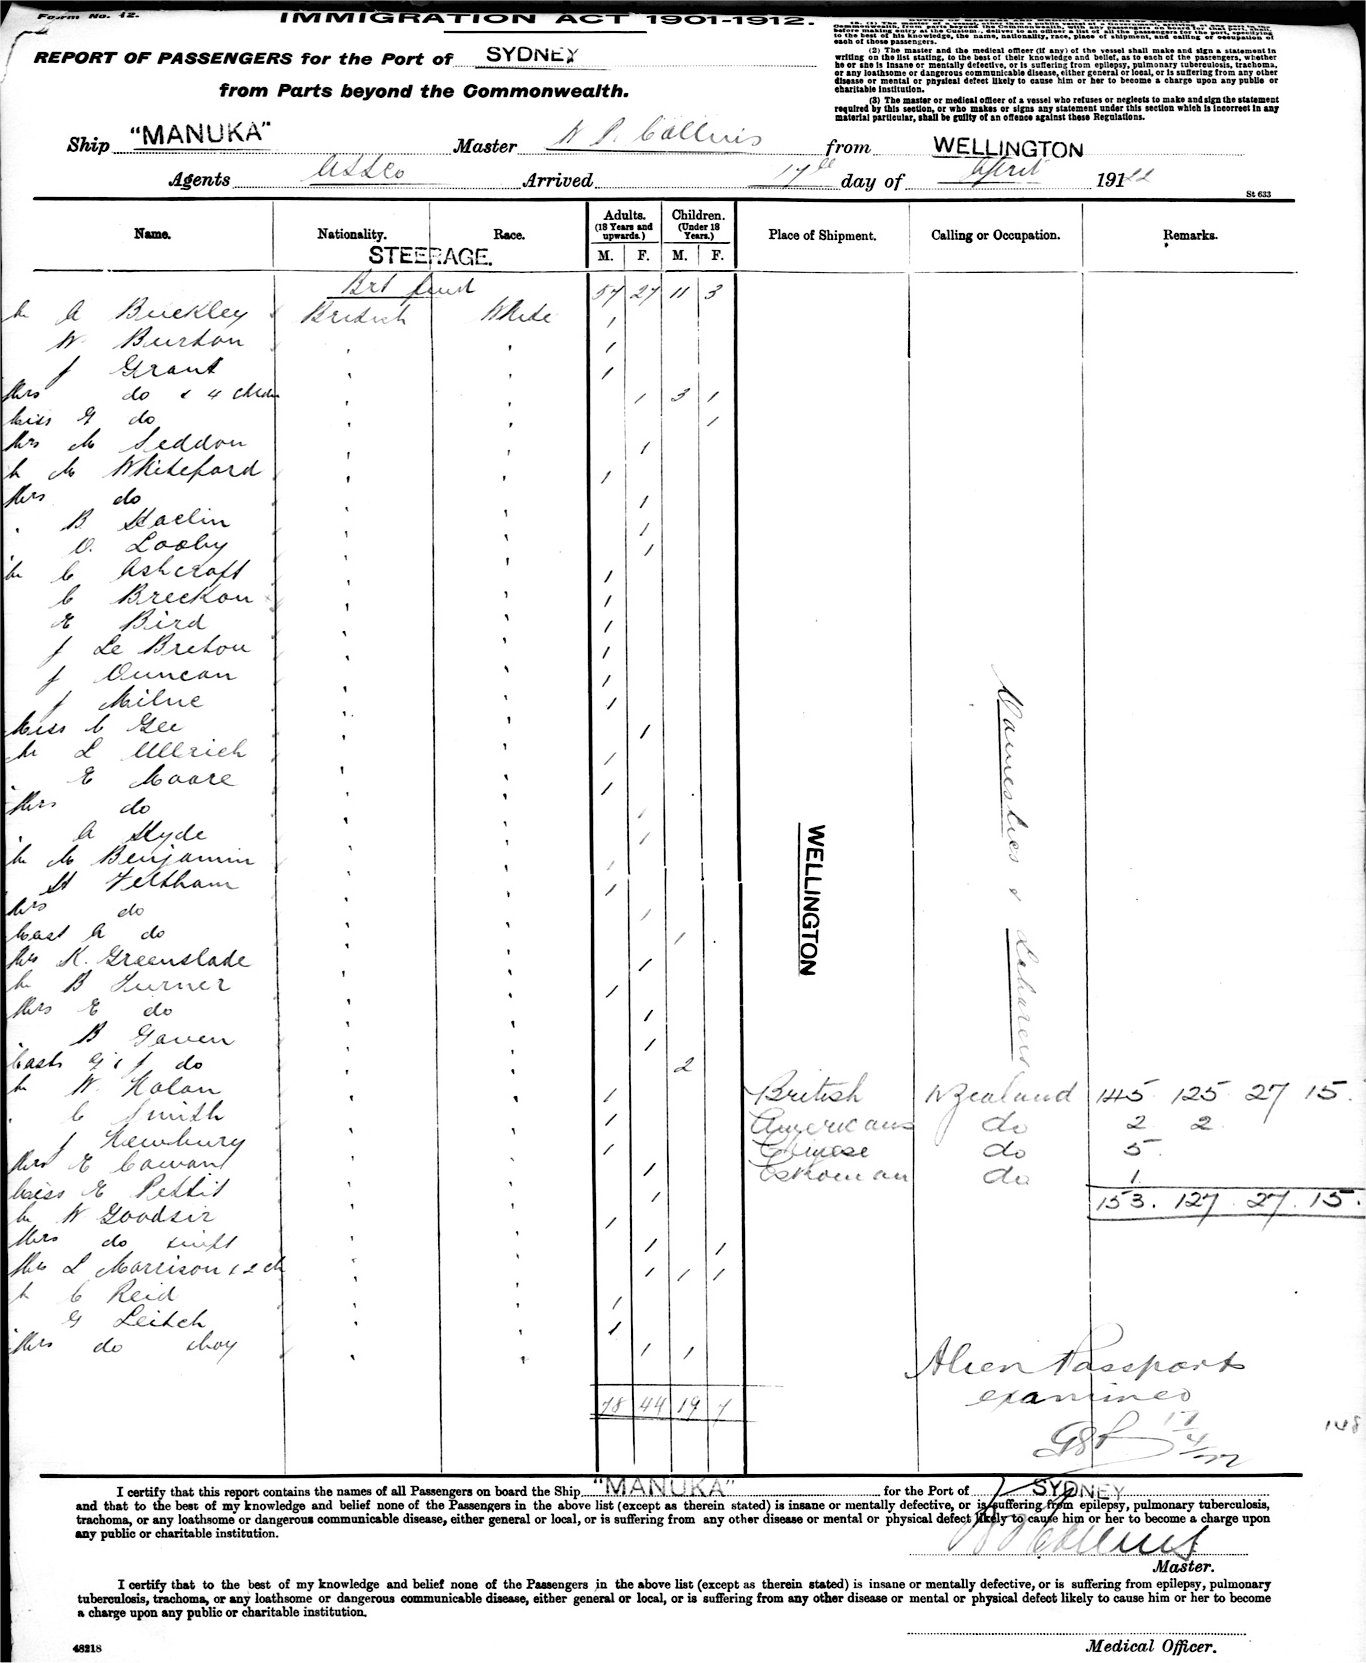 Form No. 12.
IMMIGRATION ACT 1901-1912.
REPORT OF PASSENGERS for the Port of SYDNEY
from Parts beyond the Commonwealth.
before making entry at the Customs, deliver to an officer a list of all the passengers for the port, specifying
to the best of his knowledge, the name, nationality, race, place of shipment, and calling or occupation of
each of those passengers.
(2) The master and the medical officer (if any) of the vessel shall make and sign a statement in
writing on the list stating, to the best of their knowledge and belief, as to each of the passengers, whether
he or she is insane or mentally defective, or is suffering from epilepsy, pulmonary tuberculosis, trachoma,
or any loathsome or dangerous communicable disease, either general or local, or is suffering from any other
disease or mental or physical defect likely to cause him or her to become a charge upon any public or
charitable institution.
(3) The master or medical officer of a vessel who refuses or neglects to make and sign the statement
required by this section, or who makes or signs any statement under this section which is incorrect in any
material particular, shall be guilty of an offence against these Regulations.
Ship "MANUKA" Master W P Collins from WELLINGTON
Agents USSCo Arrived 17th day of April 1922
St 633
Name. Nationality. Race. Adults. (18 Years and upwards.) Children. (Under 18 Years.) Place of Shipment. Calling or Occupation. Remarks.
M. F. M. F.
STEERAGE.
Brt fwd 57 27 11 3
Mr A Buckley British White 1
W Burton " " 1
J Grant " " 1
Mrs do & 4 chdn " " 1 3 1
Miss G do " " 1
Mrs M Seddon " " 1
Mr M Whiteford " " 1
Mrs do " " 1
" B Haclin " " 1
O. Looby " " 1
Mr C Ashcroft " " 1
C Breckon " " 1
E Bird " " 1
J Le Breton " " 1
J Duncan " " 1
J Milne " " 1
Miss C Gee " " 1
Mr L Ullrich " " 1
E Moore " " 1
Mrs do " " 1
" A Hyde " " 1
Mr M Benjamin " " 1
H Feltham " " 1
Mrs do " " 1
Mast A do " " 1
Mrs K. Greenslade " " 1
Mr B Turner " " 1
Mrs E do " " 1
B Gaven " " 1
Masts G & J do " " 2
Mr W Nolan " " 1
" C Smith " " 1
J Newbury " " 1
Mrs E Cowan " " 1
Miss E Pettit " " 1
Mr W Goodsir " " 1
Mrs do & inft " " 1 1
Mrs L Morrison & 2 ch " " 1 1 1
Mr C Reid " " 1
G Leitch " " 1
Mrs do & boy " " 1 1
78 44 19 7
WELLINGTON
British N Zealand 145 125 27 15.
Americans do 2 2
Chinese do 5
do 1
153. 127 27. 15.
Alien Passports
examined
17/4/22
148
I certify that this report contains the names of all Passengers on board the Ship "MANUKA" for the Port of SYDNEY
and that to the best of my knowledge and belief none of the Passengers in the above list (except as therein stated) is insane or mentally defective, or is suffering from epilepsy, pulmonary tuberculosis,
trachoma, or any loathsome or dangerous communicable disease, either general or local, or is suffering from any other disease or mental or physical defect likely to cause him or her to become a charge upon
any public or charitable institution.
W P Collins
Master.
I certify that to the best of my knowledge and belief none of the Passengers in the above list (except as therein stated) is insane or mentally defective, or is suffering from epilepsy, pulmonary
tuberculosis, trachoma, or any loathsome or dangerous communicable disease, either general or local, or is suffering from any other disease or mental or physical defect likely to cause him or her to become
a charge upon any public or charitable institution.
48218
Medical Officer.